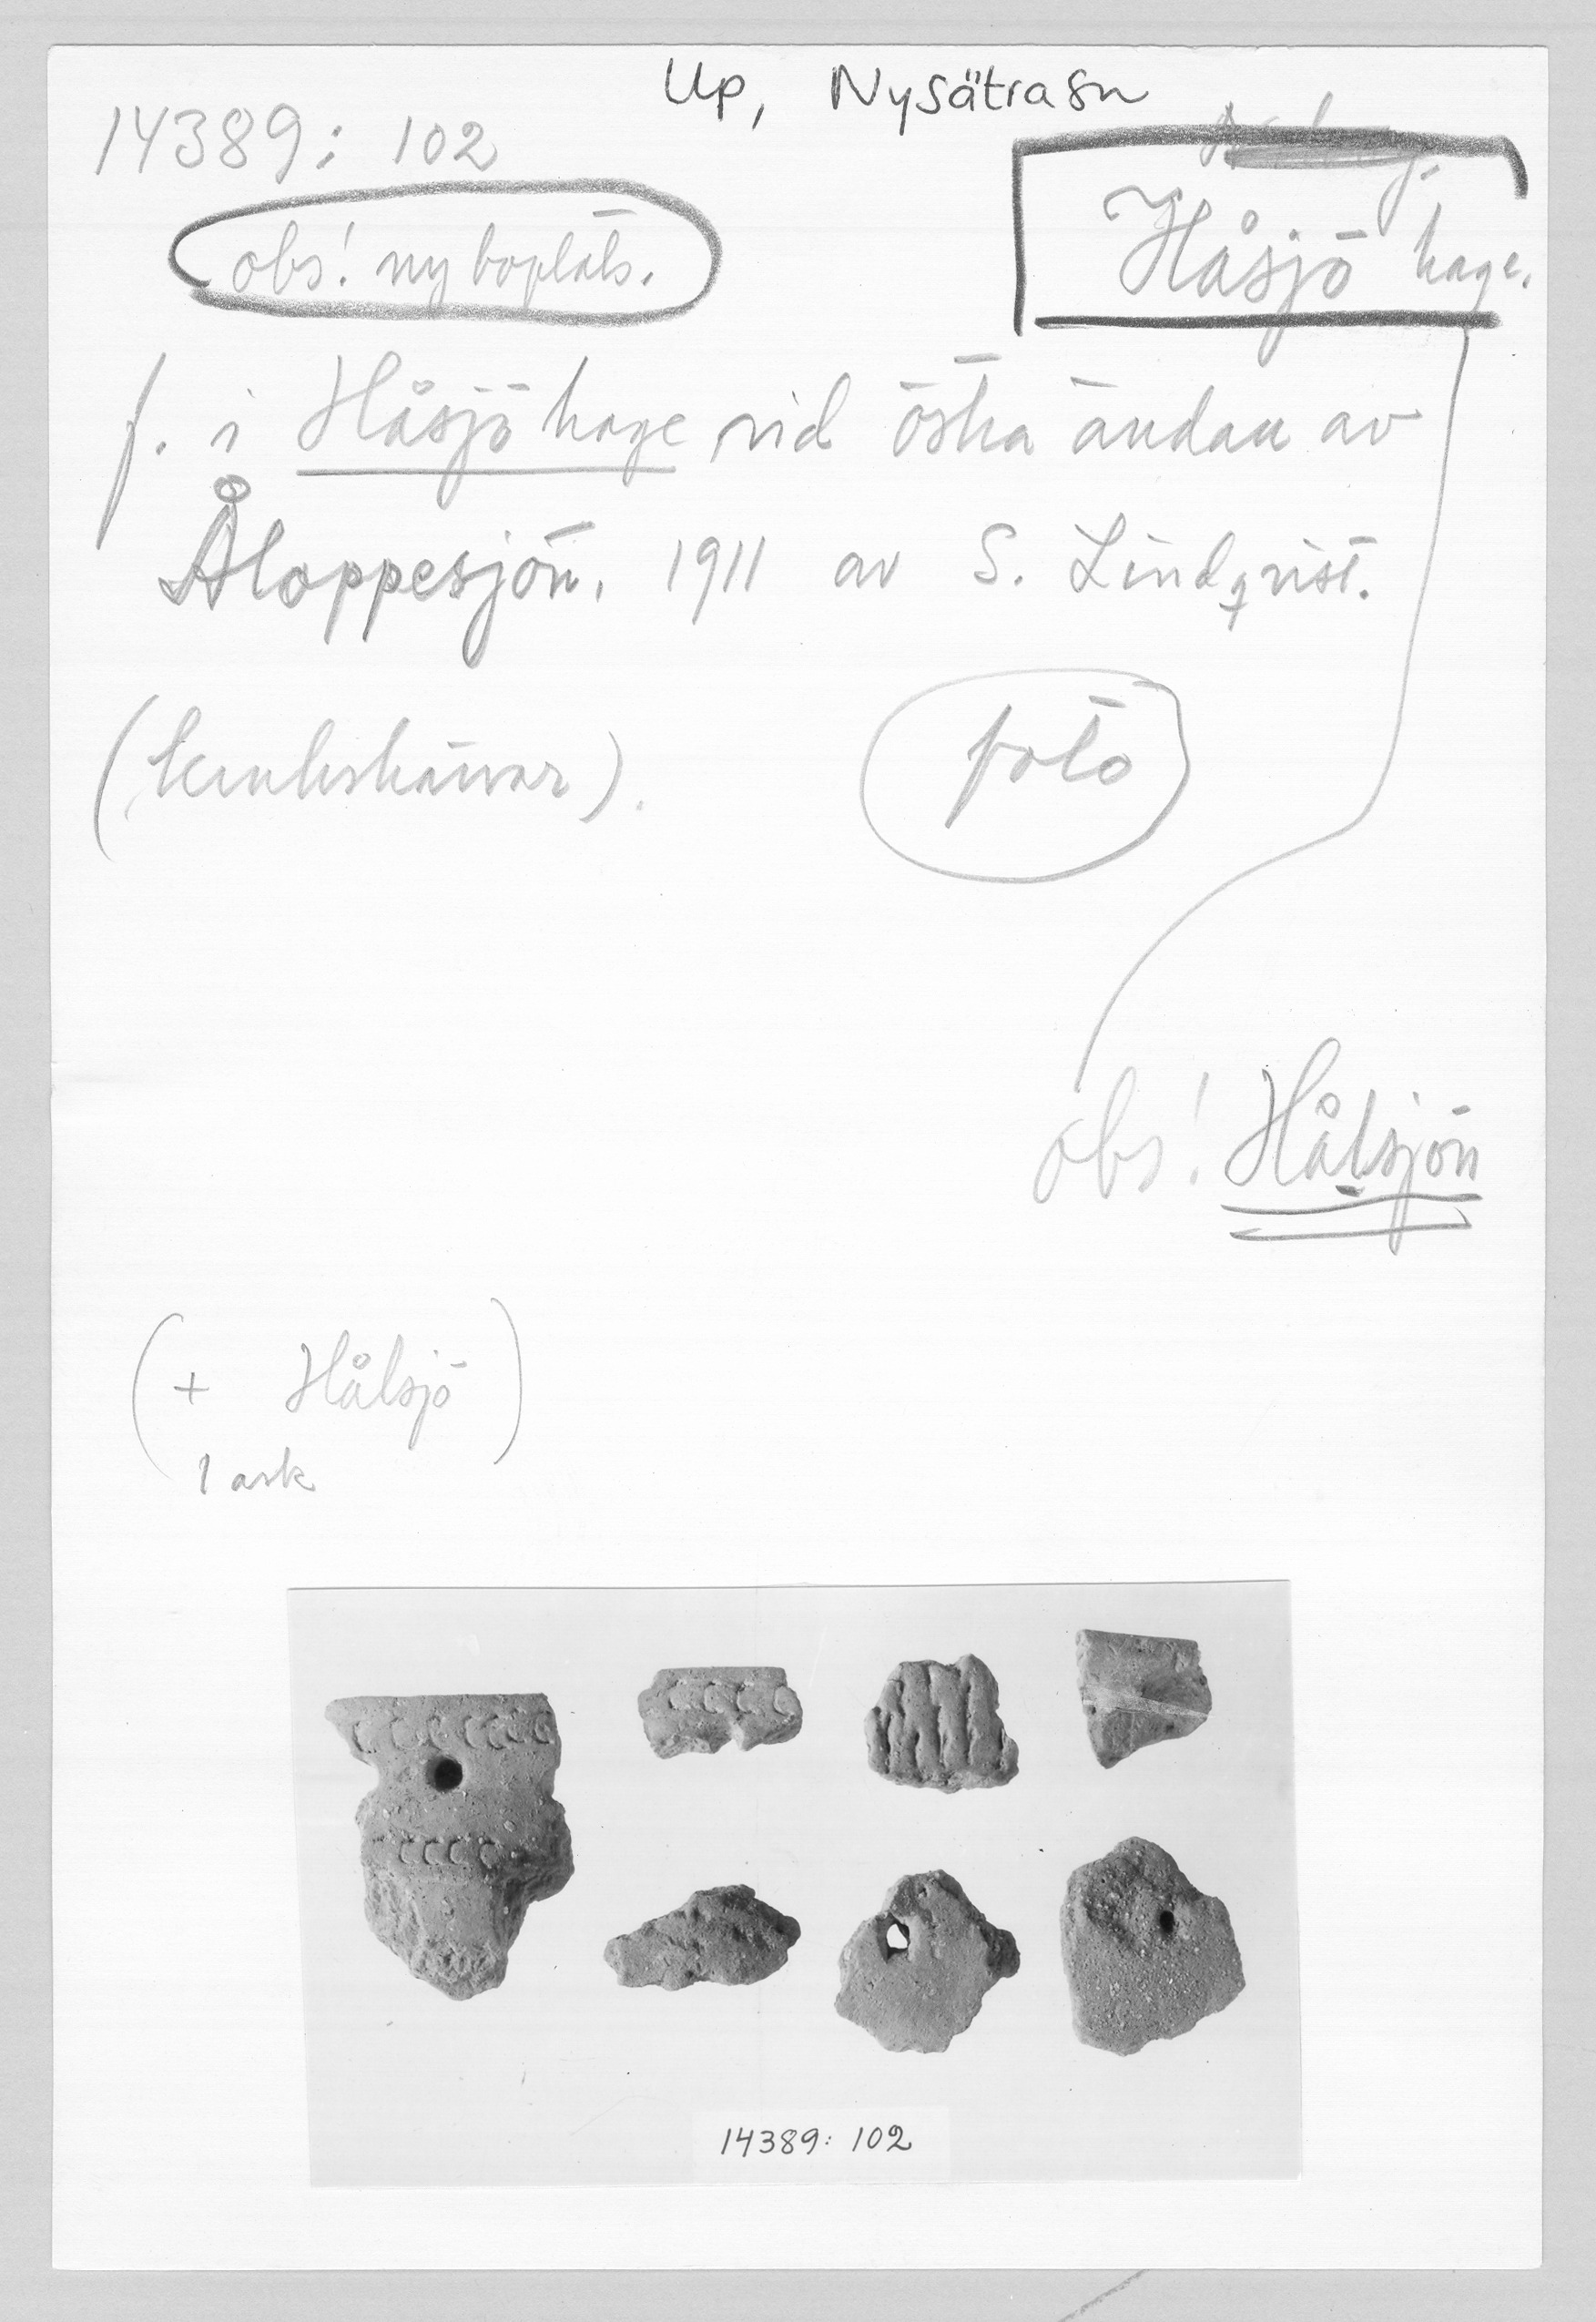 Up, Nysätra sn
14389: 102
obs! ny boplats.
Håsjö hage.
f. i Håsjö hage vid östra ändan av
Åloppesjön, 1911 av S. Lindqvist.
(krukskärvor).
foto
obs! Hålsjön
(+ Hålsjö)
1 ask
14389: 102